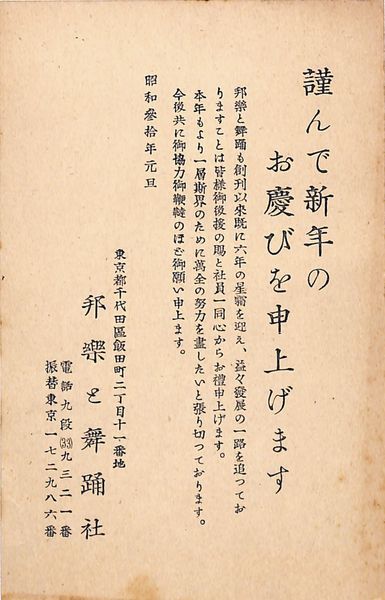 謹んで新年の
お慶びを申上げます
邦樂と舞踊も創刊以來既に六年の星霜を迎え、益々發展の一路を追つてお
りますことは皆様御後援の賜と社員一同心からお禮申上げます。
本年もより一層斯界のために萬全の努力を盡したいと張り切つております。
今後共に御協力御鞭韃のほど御願い申上ます。
昭和参拾年元旦
東京都千代田區飯田町二丁目十一番地
邦樂と舞踊社
電話九段(33)九三二一番
振替東京一七二九八六番